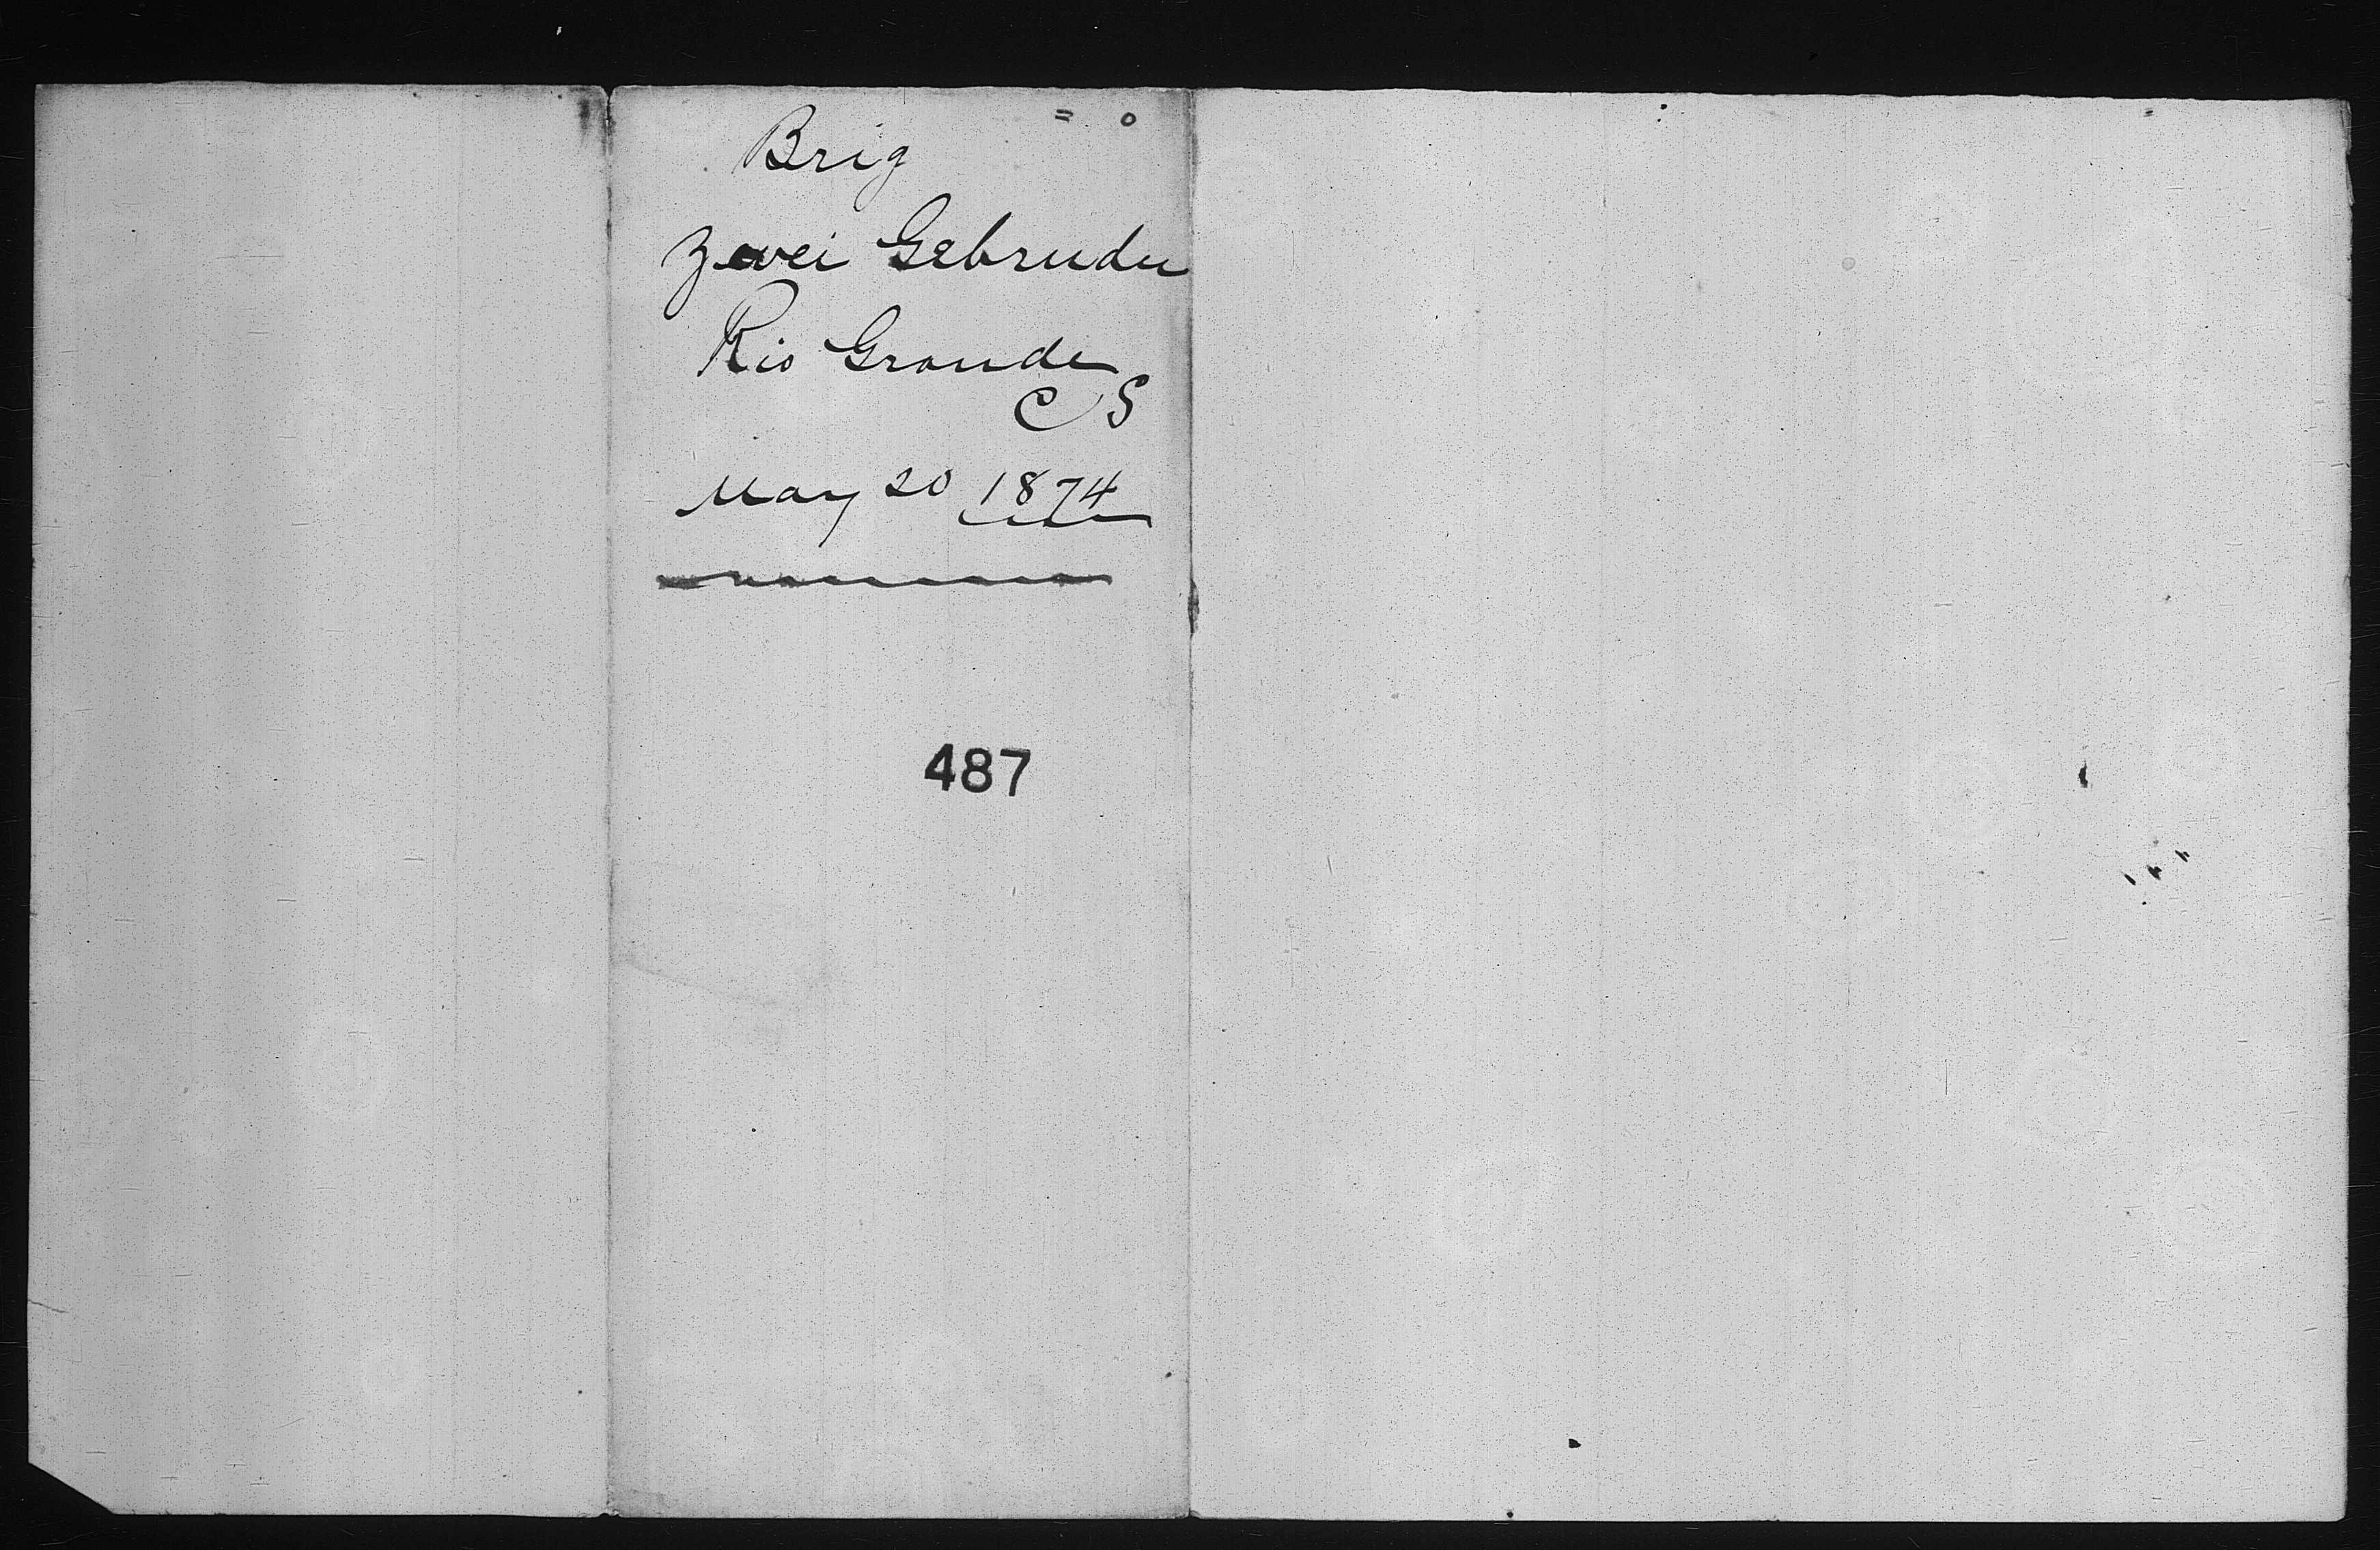 Brig
Zwei Gebruder
Rio Grande
C S
May 20 1874
487